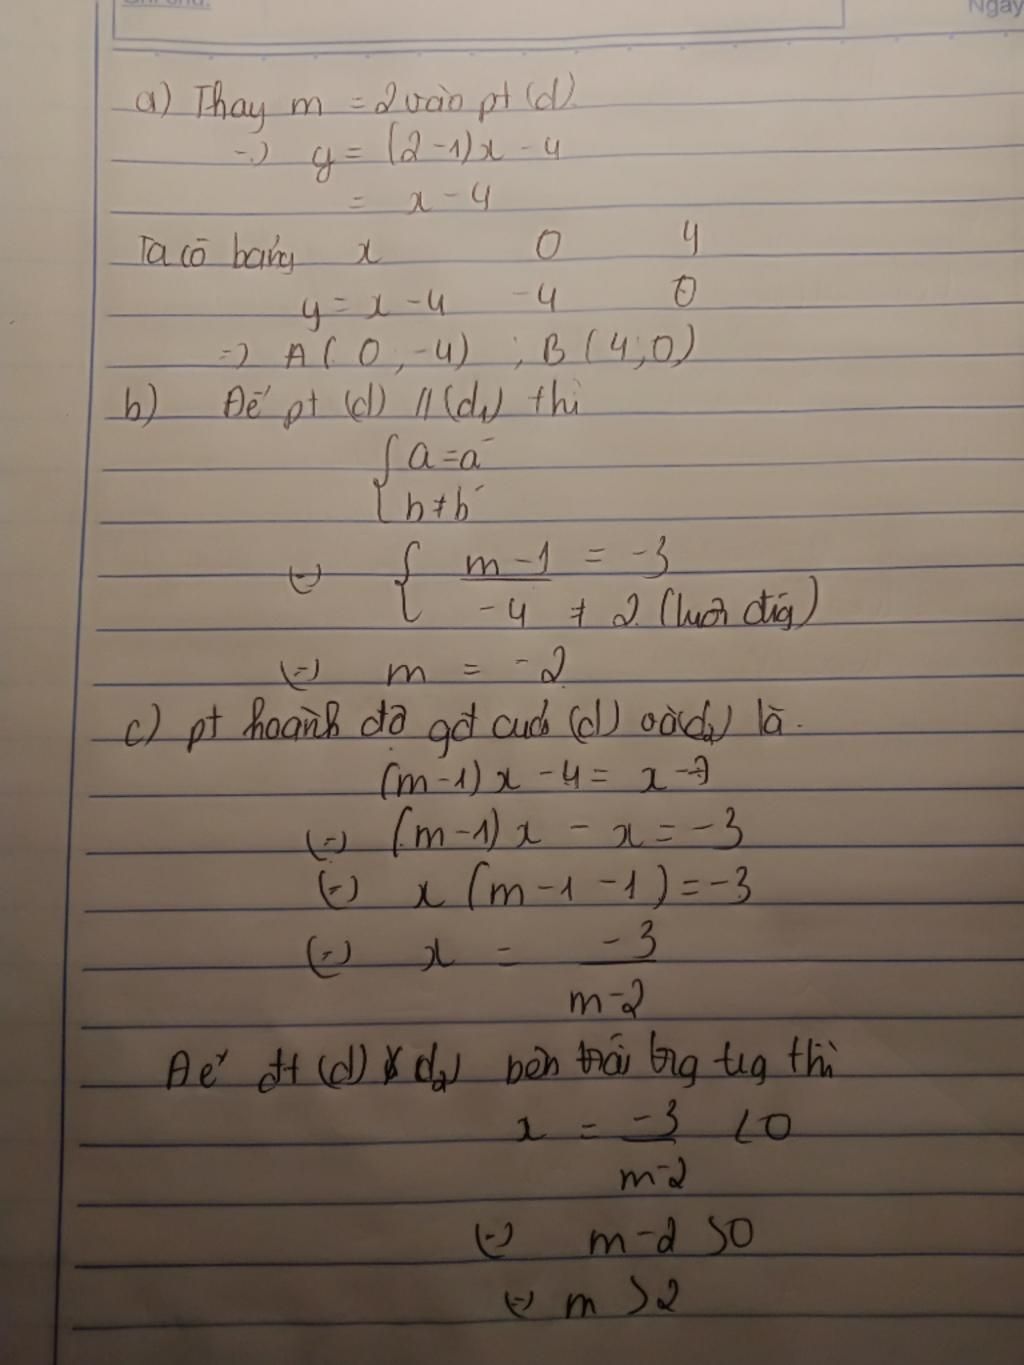 Ngày
a) Thay m = 2 vào pt (d)
=> y = (2-1)x - 4
= x - 4
Ta có bảng x 0 4
y = x - 4 -4 0
=> A(0, -4) ; B(4; 0)
b) Để pt (d) // (d₁) thì
{ a = a'
b ≠ b'
(=) { m - 1 = -3
-4 ≠ 2 (luôn đúg)
(=) m = -2
c) pt hoành độ gđ của (d) và (d₂) là.
(m-1)x - 4 = x - 7
(=) (m-1)x - x = -3
(=) x(m - 1 - 1) = -3
(=) x = -3
m-2
Để đt (d) x d₂) bên trái trg tug thì
x = -3 < 0
m-2
(=) m - 2 > 0
(=) m > 2